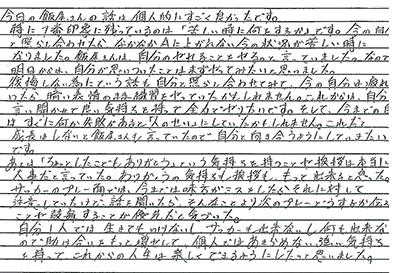 今日の飯尾さんの話は個人的にすごく良かったです。
特に1番印象に残っているのは「苦しい時に何をするか」です。今の自分
と照らし合わせたら なかなかAに上がれない今の状況が苦しい時に
なりました。飯尾さんは、自分のやれることをやると言っていました。なので
明日からは、自分が思いついたことはまずやってみたいと思いました。
後悔しない為にという話も自分と照らし合わせてみて、今の自分は疲れ
いたら、暗い表情のまま練習をやっていたかもしれません。これからは、自分
に言い聞かせて良い気持ちを持って全力でやりたいです。そして、今までの自分
はすぐに何か失敗があると人のせいにしていたかもしれません。これだと
成長はしないと飯尾さんも言っていたので自分と向き合うようにしていきたい
です。
あとは「ちょっとしたことでもありがとう」という気持ちを持つことや挨拶は本当に
大事だと言っていた。ありがとうの気持ちも挨拶も、もっと出来ると思った。
サッカーのプレー面では、今までは味方がミスをしたらそれに対して
注意していたけど、話を聞いたら、そんなことより次のプレーどうするか
ことや鼓舞することが優先だと気づいた。
自分1人では 生きてもいけないし、サッカーも出来ないし何も出来ない
ので助け合いをもっと増やして、個人ではあきらめない強い気持ち
を持って、これからの人生は楽しくできるようにしたいと思いました。